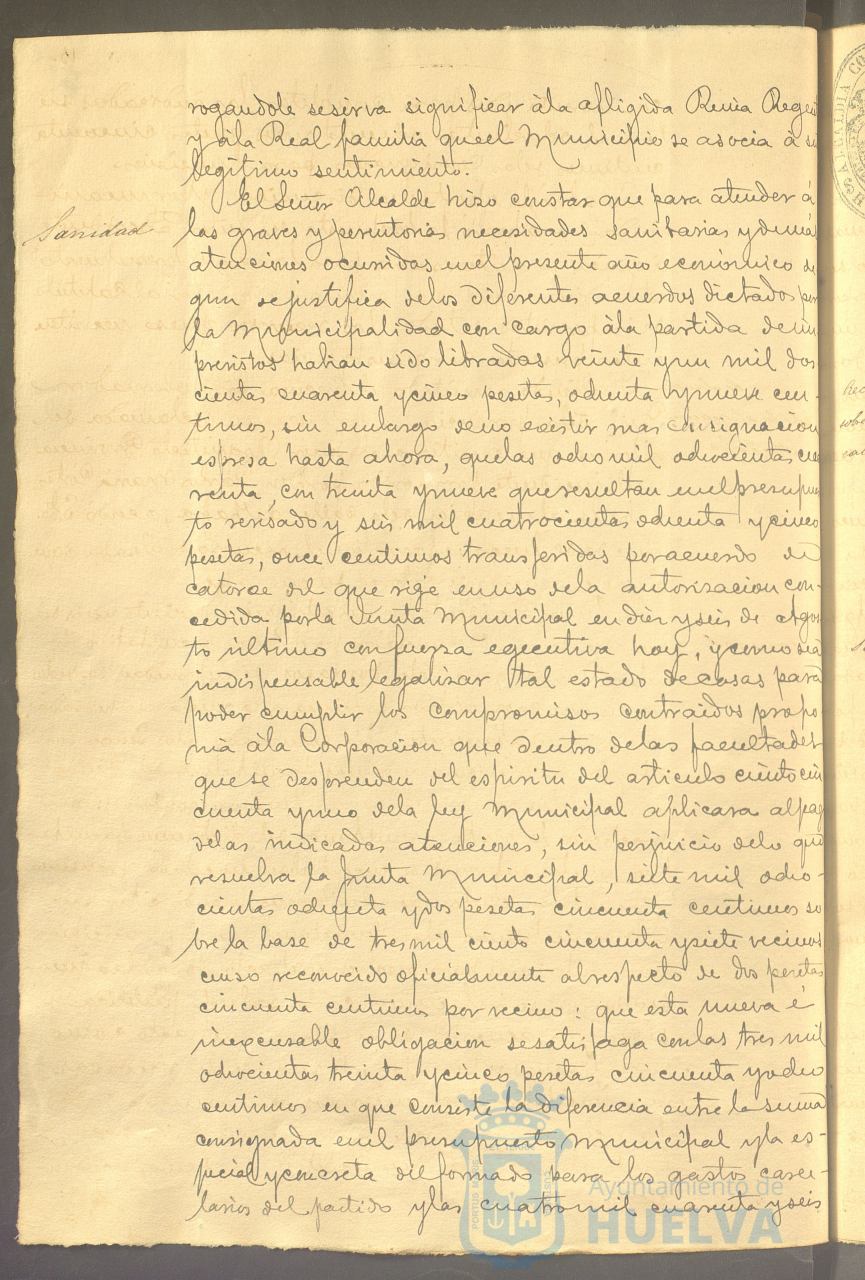 rogandole se sirva significar á la afligida Reina Regen
y á la Real familia que el Municipio se asocia á su
legitimo sentimiento.
Sanidad
El Señor Alcalde hizo constar que para atender á
las graves y perentorias necesidades sanitarias y demás
atenciones ocurridas en el presente año económico se
gun se justifica de los diferentes acuerdos dictados por
la Municipalidad con cargo á la partida de im
previstos habian sido libradas veinte y un mil dos
cientas cuarenta y cinco pesetas, ochenta y nueve cen-
timos, sin embargo de no existir mas consignacion
espresa hasta ahora, que las ocho mil ochocientas cua
renta, con treinta y nueve que resultan en el presupues
to revisado y seis mil cuatrocientas ochenta y cinco
pesetas, once centimos transferidas por acuerdo de
catorce del que rige en uso de la autorizacion con-
cedida por la Junta Municipal en diez y seis de Agos
to último con fuerza egecutiva hoy, y como sea
indispensable legalizar tal estado de cosas para
poder cumplir los compromisos contraidos propo
nia á la Corporacion que dentro de las facultades
que se desprenden del espiritu del articulo ciento cin
cuenta y uno de la ley Municipal aplicara al pag
de las indicadas atenciones, sin perjuicio de lo que
resuelva la Junta Municipal, siete mil ocho-
cientas ochenta y dos pesetas cincuenta centimos so
bre la base de tres mil ciento cincuenta y siete vecinos
censo reconocido oficialmente al respecto de dos pesetas
cincuenta centimos por vecino: que esta nueva é
inexcusable obligacion se satisfaga con las tres mil
ochocientas treinta y cinco pesetas cincuenta y ocho
centimos en que consiste la diferencia entre la suma
consignada en el presupuesto Municipal y la es-
pecial y concreta del formado para los gastos carce-
larios del partido y las cuatro mil cuarenta y seis
Ayuntamiento de
HUELVA